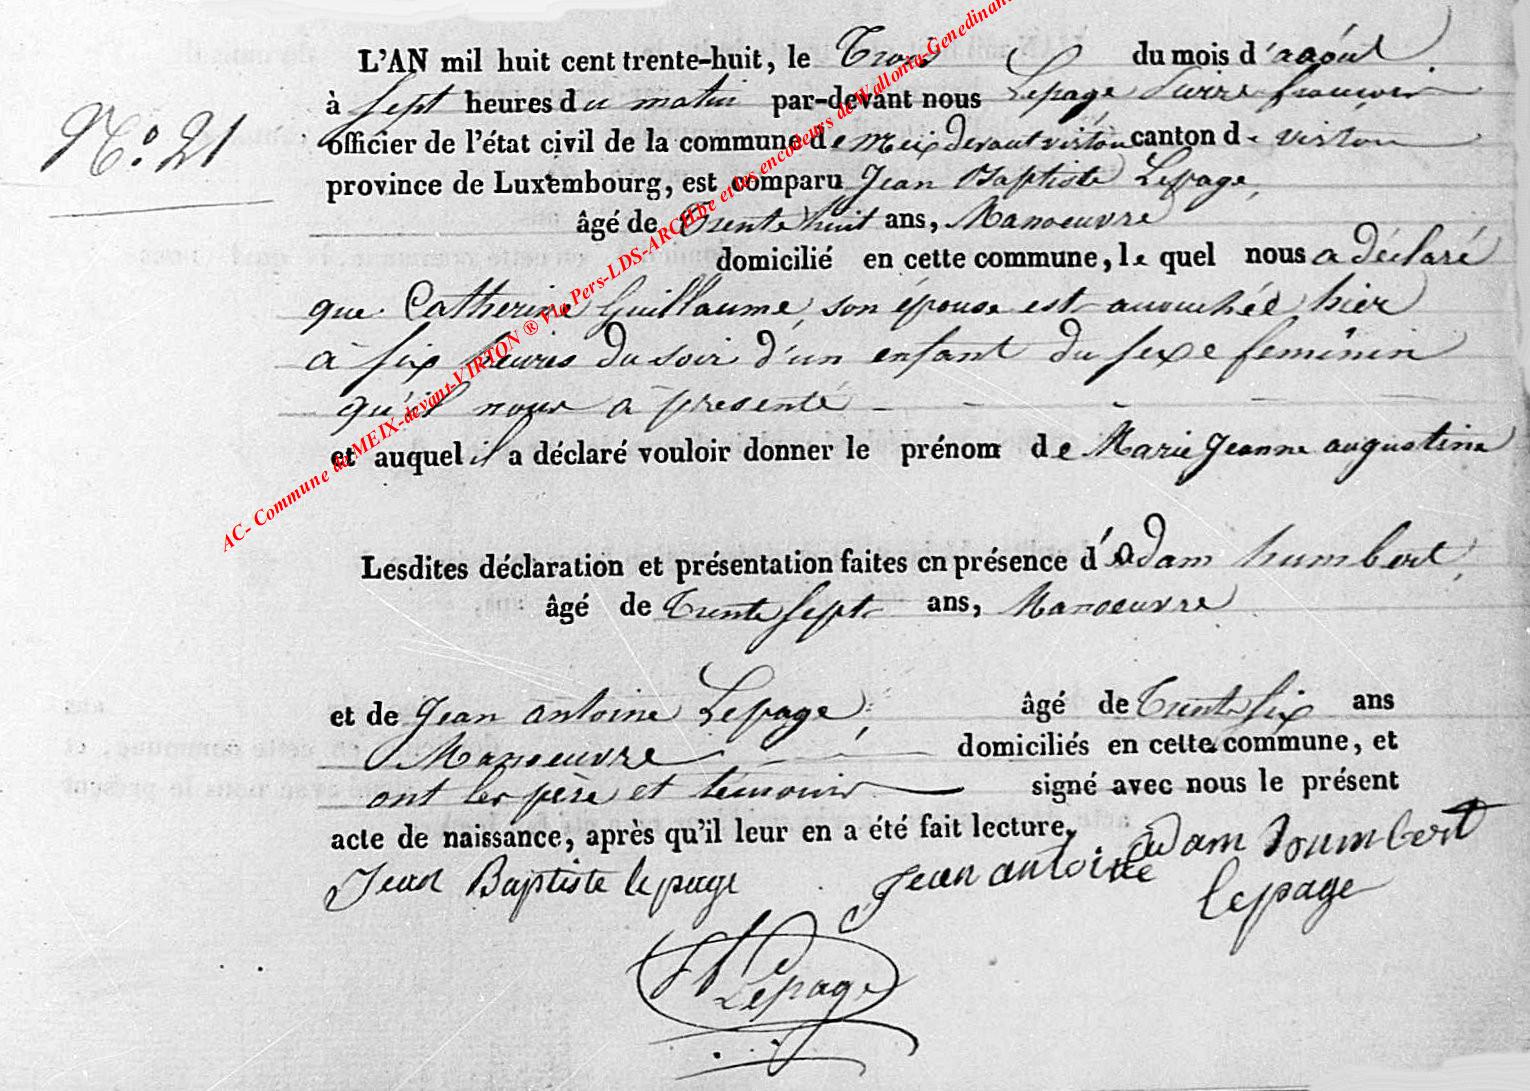 L'AN mil huit cent trente-huit, le Trois du mois d'aaóut
à Sept heures du matin par-devant nous Lepage Pierre françois
officier de l'état civil de la commune de Meix devant virton canton de virton
N.o 21
province de Luxembourg, est comparu Jean Baptiste Lepage,
âgé de Trente huit ans, Manoeuvre
domicilié en cette commune, le quel nous a déclaré
que Catherine Guillaume, son épouse est accouchée hier
à six heures du soir d'un enfant du sexe feminin
qu'il nous a presenté
et auquel il a déclaré vouloir donner le prénom de Marie Jeanne augustine
Lesdites déclaration et présentation faites en présence d'adam humbert,
âgé de Trente Sept ans, Manoeuvre
et de Jean antoine Lepage, âgé de Trente Six ans
Manoeuvre domiciliés en cette commune, et
ont les père et témoins signé avec nous le présent
acte de naissance, après qu'il leur en a été fait lecture.
adam houmbert
Jean Baptiste lepage Jean antoine lepage
Lepage
AC- Commune de MEIX-devant-VIRTON ® via Pers-LDS-ARCH.be et les encodeurs de Wallonia-Genedinant